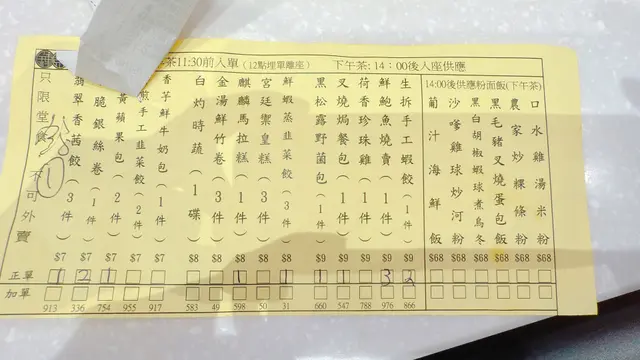 茶11:30前入單 (12點埋單離座) 下午茶: 14:00後入座供應
14:00後供應粉面飯(下午茶)
口水雞湯米粉 $68
農家炒粿條粉 $68
黑毛豬叉燒蛋包飯 $68
黑白胡椒蝦球煮烏冬 $68
沙嗲雞球炒河粉 $68
葡汁海鮮飯 $68
生拆手工蝦餃(1件) $9 2 866
鮮鮑魚燒賣(1件) $9 3 976
荷香珍珠雞(1件) $9 1 788
叉燒焗餐包(1件) $9 1 547
黑松露野菌包(1件) $9 1 660
鮮蝦蒸韭菜餃(3件) $8 1 31
宮廷棗皇糕(3件) $8 50
麒麟馬拉糕(1件) $8 1 598
金湯鮮竹卷(3件) $8 49
白灼時蔬(1碟) $8 583
香芋鮮牛奶包(1件) $7 917
煎手工韭菜餃(2件) $7 955
黃蘋果包(2件) $7 1 754
脆銀絲卷(1件) $7 2 336
翡翠香茜餃(3件) $7 1 913
只限堂食 不可外賣
①
正單
加單